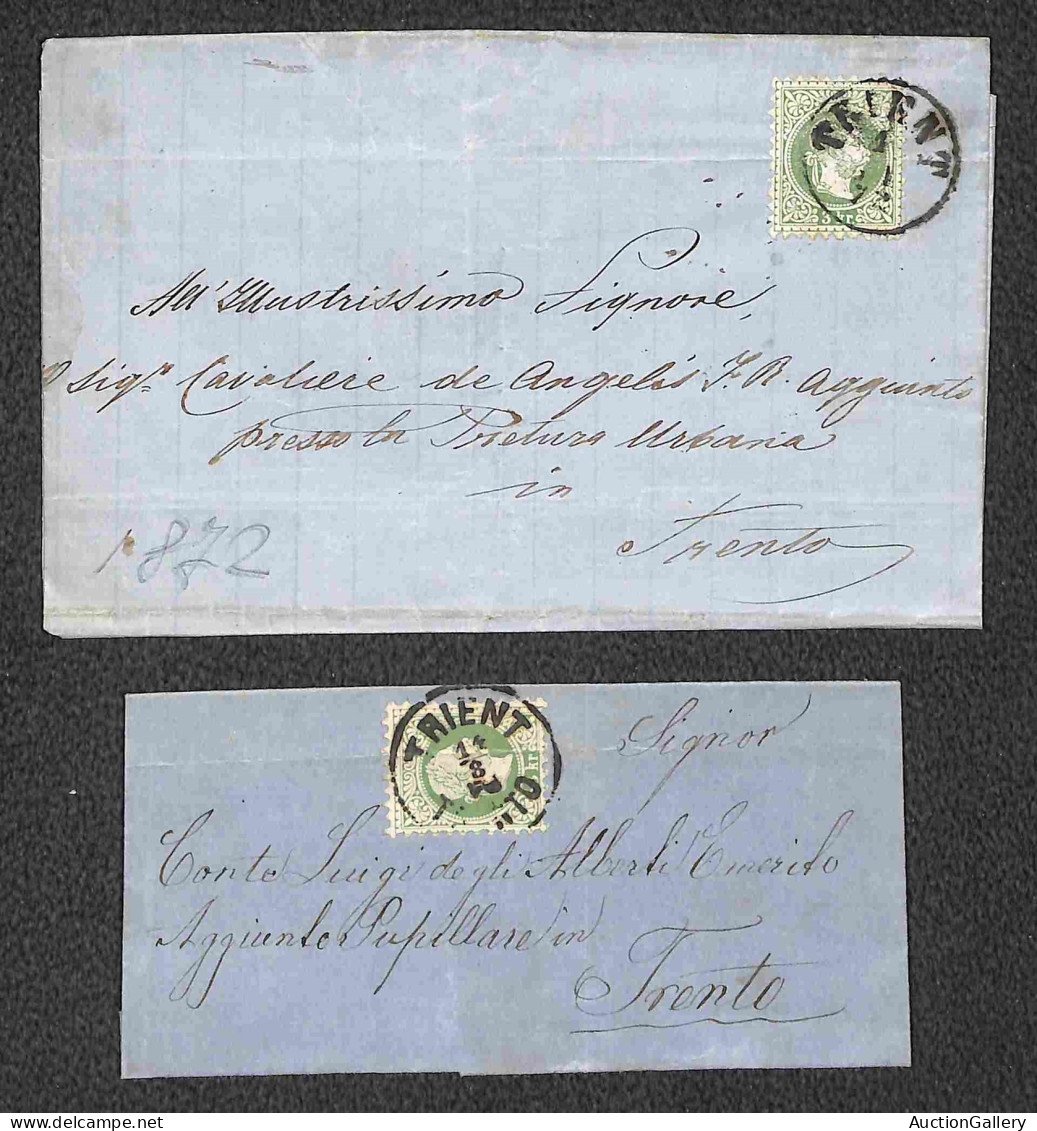 TRIENT
3 kr.
All' Illustrissimo Signore,
sigr Cavaliere de Angelis I. R. Aggiunto
presso la Pretura Urbana
in
Trento
1872
TRIENT
14
8
kr
Signor
Conte Luigi degli Alberti Emerito
Aggiunto Pupillare in
Trento
AuctionGallery